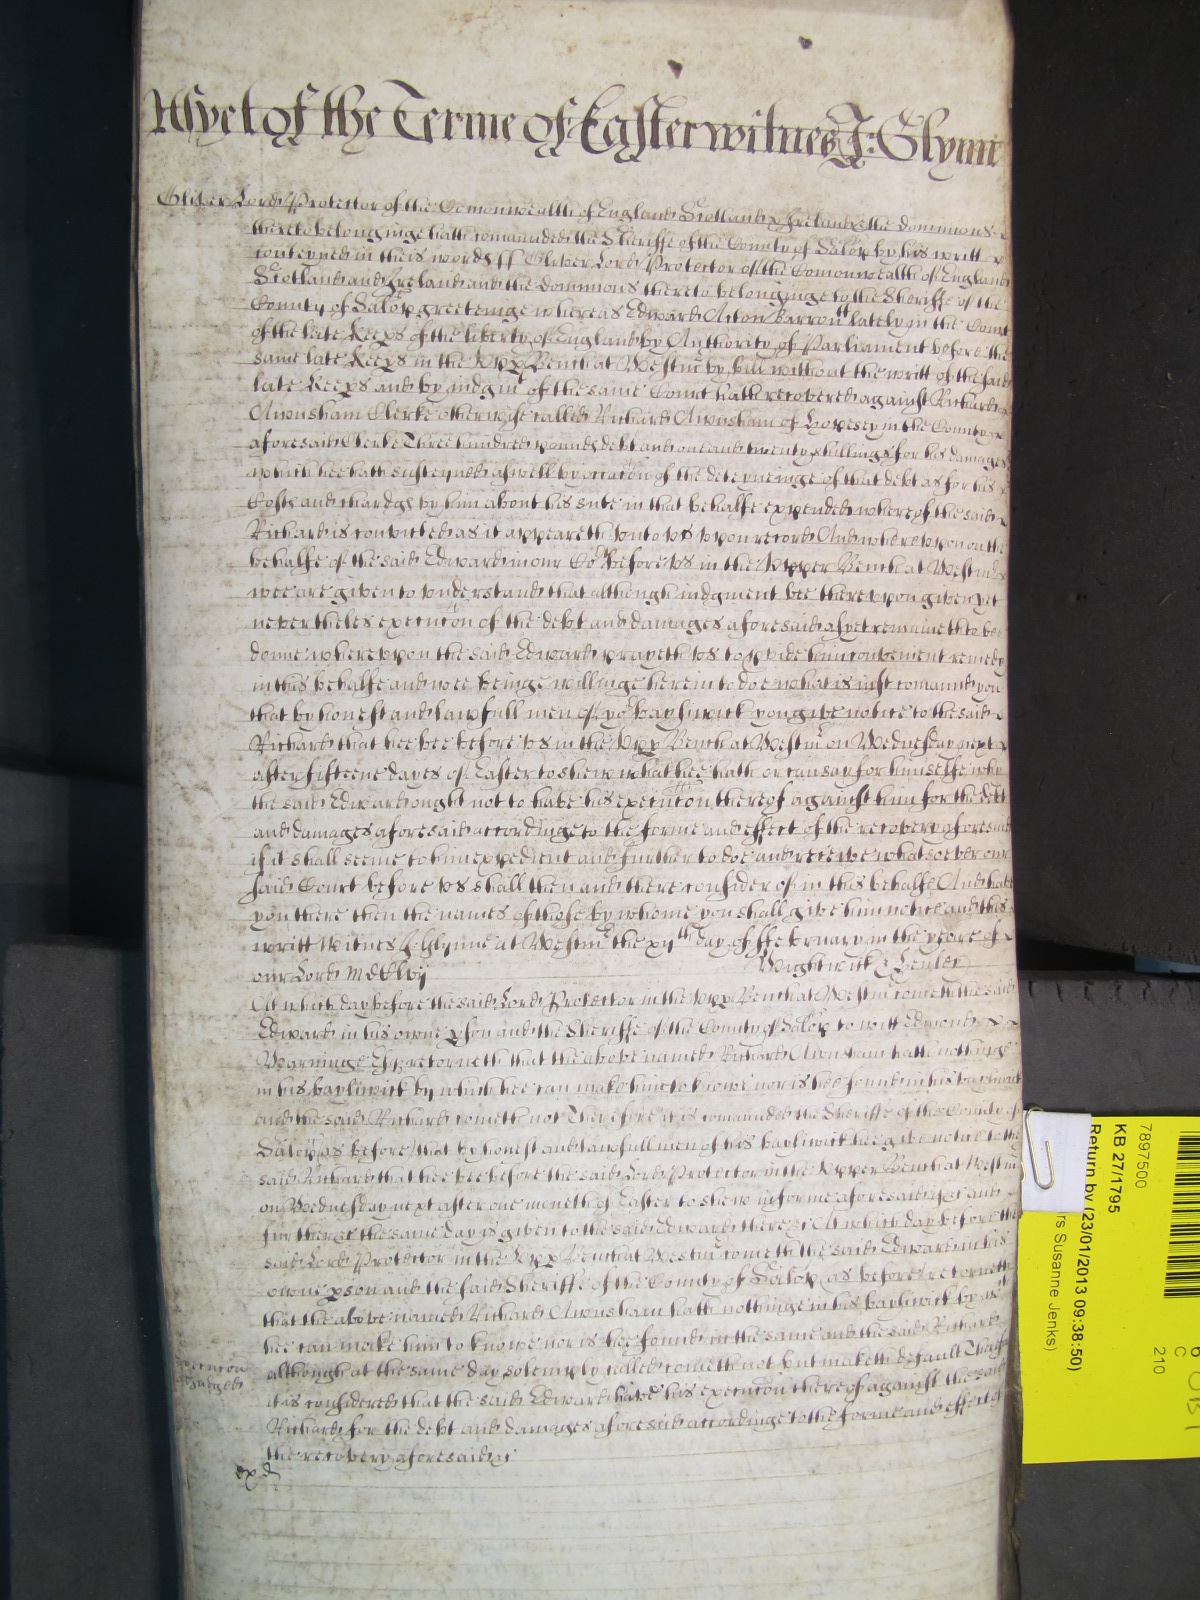 As yet of the Terme of Easter witnes J: Glynn
Oliver Lord Protector of the Comonwealth of England Scotland & Ireland & the dominions
thereto belonginge hath comaunded the Sheriffe of the County of Salop by his writt
conteyned in theis words ss Oliver Lord Protector of the Comonwealth of England
Scotland and Ireland and the dominions thereto belonginge to the Sheriffe of the
County of Salop greetinge whereas Edward Acton Barrontt lately in the Court
of the late Keeps of the liberty of England by Authority of Parliament before the
same late Keeps in the Upp Bench at Westmr by bill without the writt of the said
late Keeps and by iudgmt of the same Court hath recovered against Richard
Awnsham Clerke otherwise called Richard Awnsham of Hopesey in the County
aforesaid Clerke Three hundred pounds debt and one and twenty shillings for his damages
which hee hath susteyned aswell by occacon of the deteyneinge of that debt as for his
Costs and chardges by him about his sute in that behalfe expended whereof the said
Richard is convicted as it appeareth unto us uppon record And whereuppon on the
behalfe of the said Edward in our Cort before us in the Upper Bench at Westmr
wee are given to understand that although iudgment bee thereuppon given yet
nevertheles execucon of the debt and damages aforesaid as yet remaineth to bee
donne whereuppon the said Edward prayeth us to pvide him convenient remedy
in this behalfe and wee beinge willinge herein to doe what is iust comaund you
that by honest and lawfull men of yor bayliwick you give notice to the said
Richard that hee bee before us in the Upp Bench at Westmr on Wednesday next
after fifteene dayes of Easter to shew what hee hath or can say for himselfe why
the said Edward ought not to have his execucon thereof against him for the debt
and damages aforesaid accordinge to the forme and effect of the recovery aforesaid
if it shall seeme to him expedient and further to doe and receive whatsoever our
said Court before us shall then and there consider of in this behalfe And have
you there then the names of those by whome you shall give him notice and this
writt Witnes J: Glynne at Westmr the xijth day of ffebruary in the yeare of
our Lord MDClvij Wightwick & Henley
At which day before the said Lord Protector in the Upp Bench at Westmr cometh the said
Edward in his owne pson and the Sheriffe of the County of Salop to witt Edmond
Warringe Esqr retorneth that the above named Richard Awnsham hath nothinge
in his bayliwick by which hee can make him to knowe nor is hee found in his bayliwick
and the said Richard cometh not Therefore it is comaunded the Sheriffe of the County of
Salop as before that by honest and lawfull men of his bayliwick hee give notice to the
said Richard that hee bee before the said Lord Protector in the Upper Bench at Westmr
on Wednesday next after one moneth of Easter to shew in forme aforesaid if &c and
further &c the same day is given to the said Edward there &c At which day before the
said Lord Protector in the Upp Bench at Westmr cometh the said Edward in his
owne pson and the said Sheriffe of the County of Salop as before retorneth
that the above named Richard Awnsham hath nothinge in his bayliwick by wch
hee can make him to knowe nor is hee found in the same and the said Richard
although at the same day solemnly called cometh not but maketh default Therefore
it is considered that the said Edward have his execucon thereof against the said
Richard for the debt and damages aforesaid accordinge to the forme and effect of
the recovery aforesaid &c
execucon
adiudged
exd
7897500
KB 27/1795
Return by (23/01/2013 09:38:50)
rs Susanne Jenks)
C
210